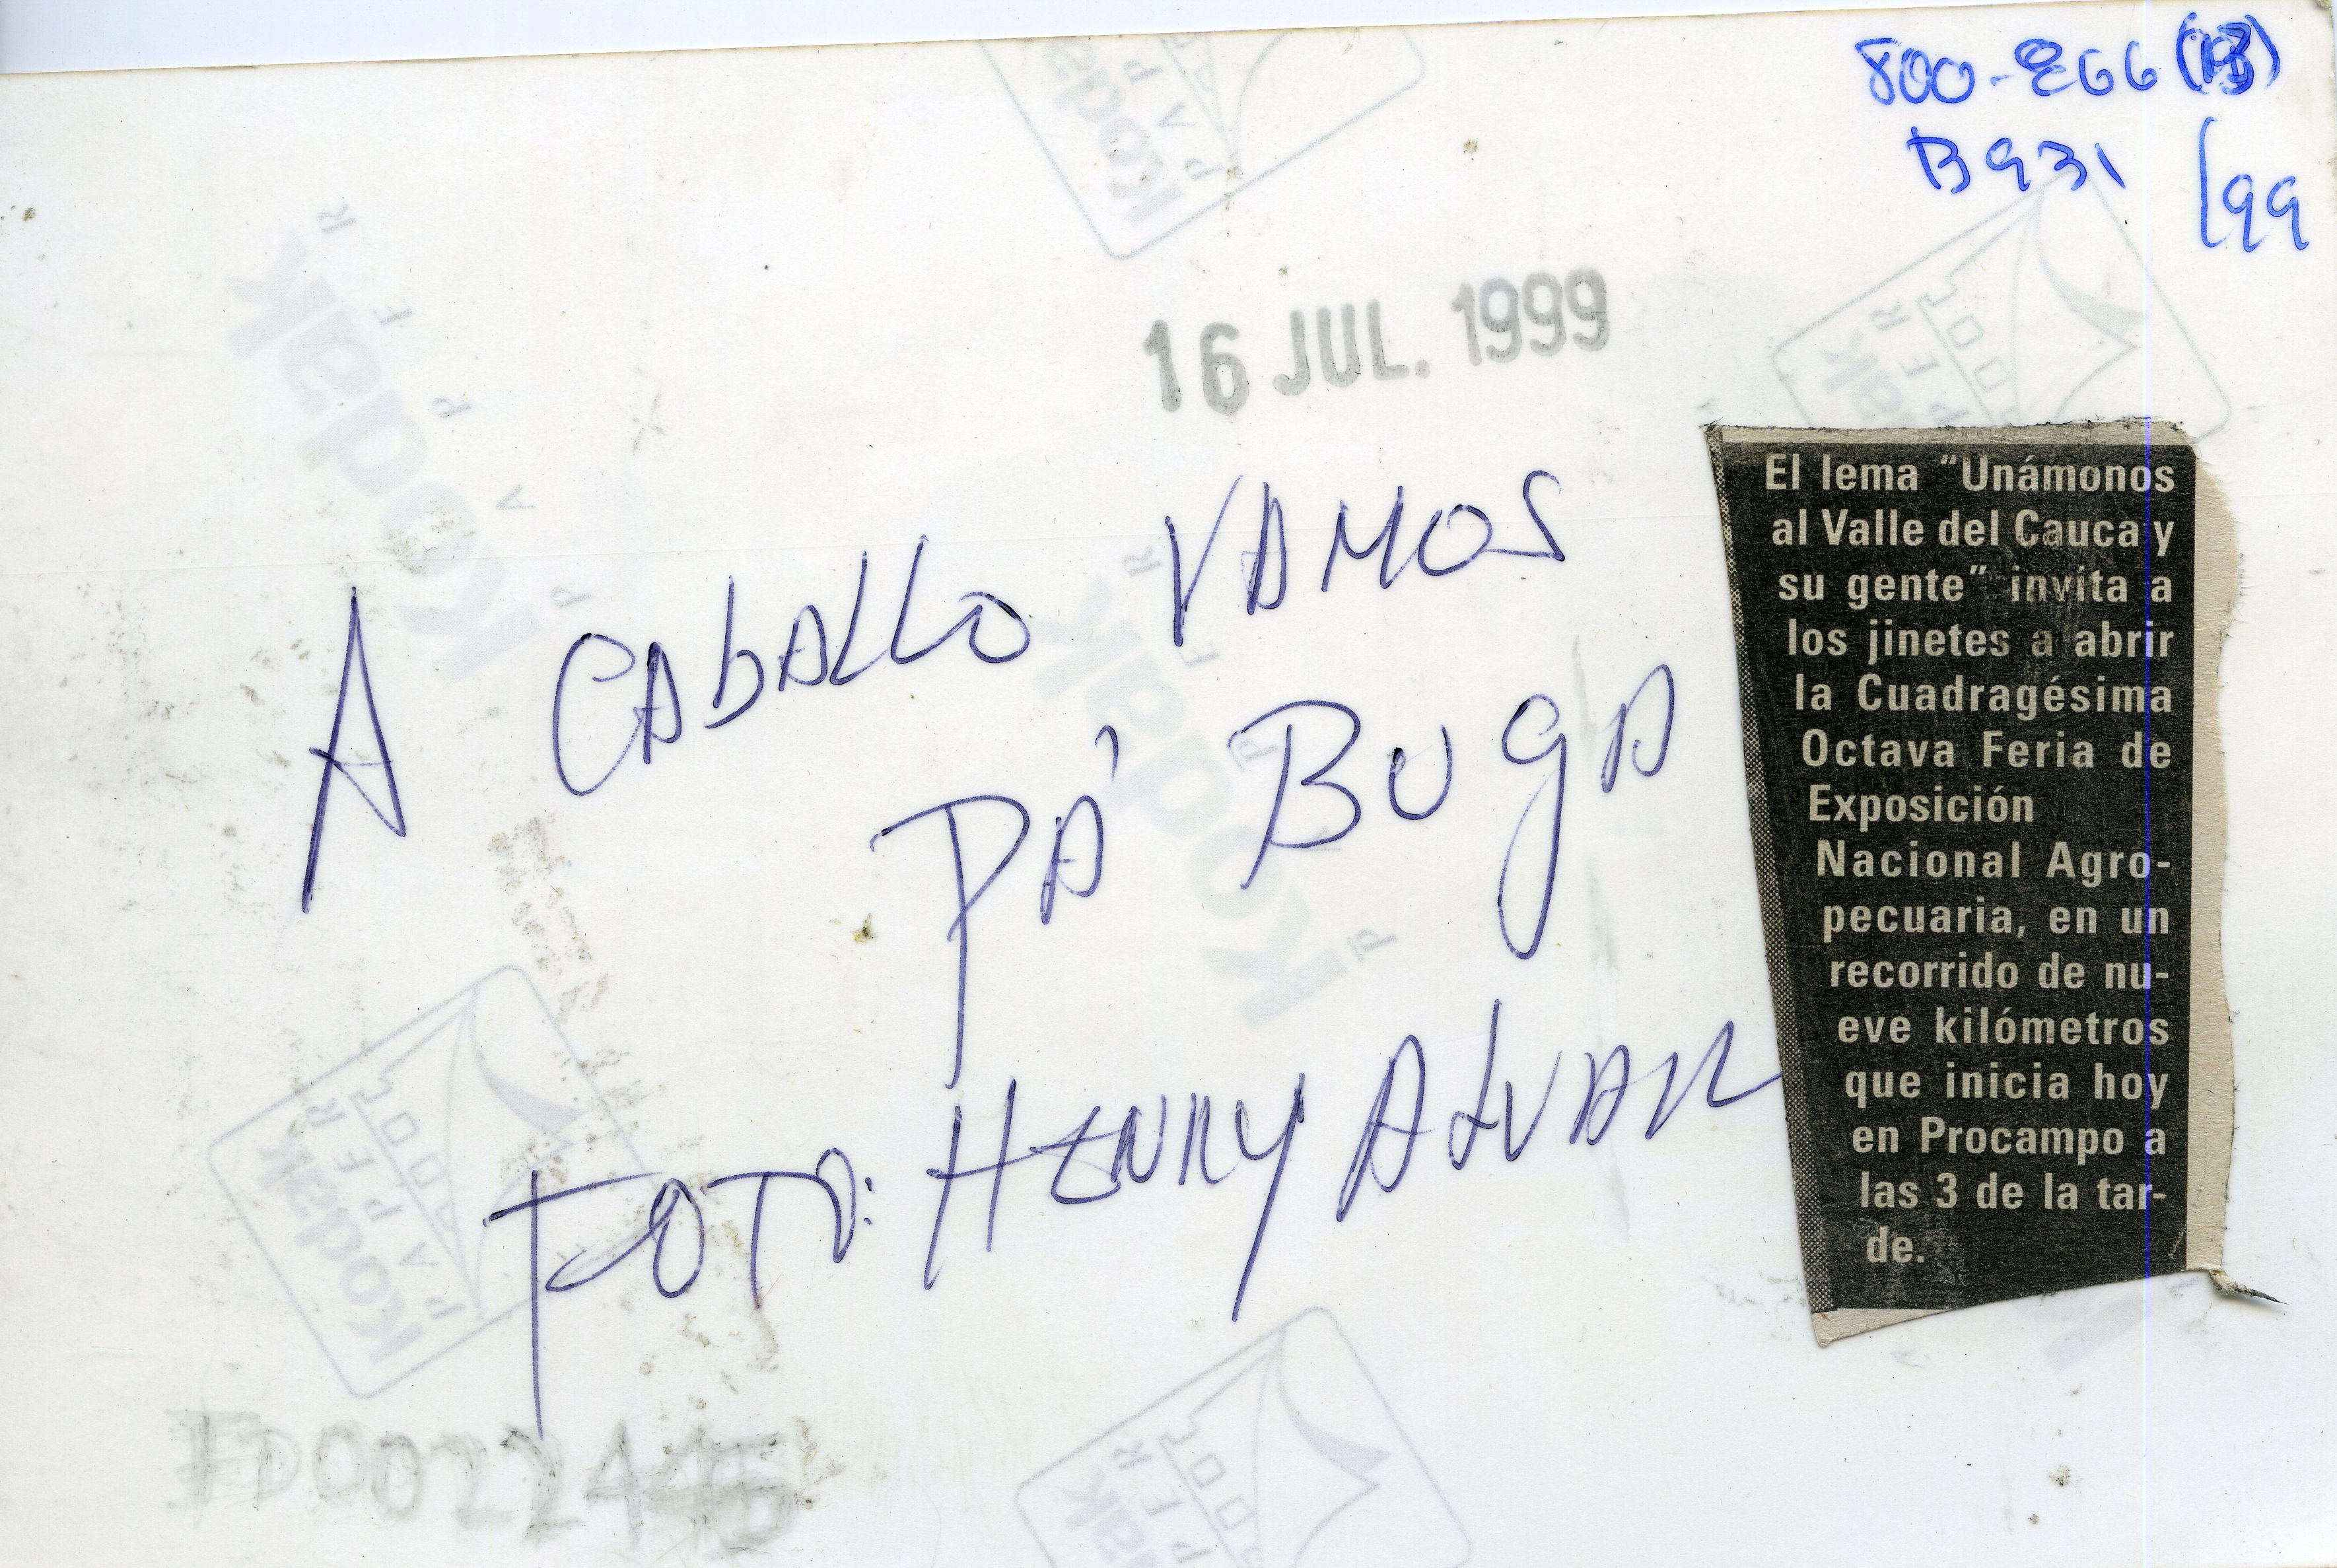 B931
/99
16 JUL. 1999
A CABALLO VAMOS
PA' BUGA
FOTO: HENRY ALVAR
El lema “Unámonos
al Valle del Cauca y
su gente” invita a
los jinetes a abrir
la Cuadragésima
Octava Feria de
Exposición
Nacional Agro-
pecuaria, en un
recorrido de nu-
eve kilómetros
que inicia hoy
en Procampo a
las 3 de la tar-
de.
Kodak
PAPER
Kodak
PAPER
Kodak
PAPER
Kodak
PAPER